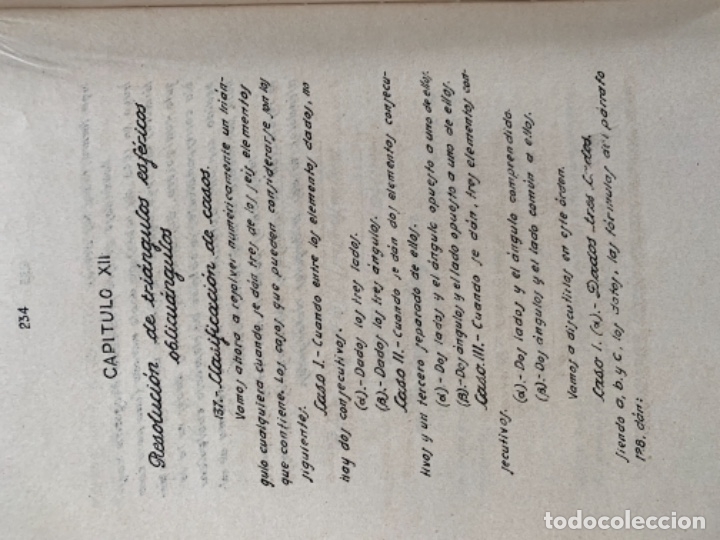 234
CAPITULO XII
Resolución de triángulos esféricos
oblicuángulos
137.- Clasificación de casos.
Vamos ahora a resolver numéricamente un trián-
gulo cualquiera cuando se dán tres de los seis elementos
que contiene. Los casos que pueden considerarse son los
siguientes:
Caso I.- Cuando entre los elementos dados, no
hay dos consecutivos.
(α).- Dados los tres lados.
(β).- Dados los tres ángulos.
Caso II.- Cuando se dán dos elementos consecu-
tivos y un tercero separado de ellos.
(α).- Dos lados y el ángulo opuesto a uno de ellos.
(β).- Dos ángulos y el lado opuesto a uno de ellos.
Caso III.- Cuando se dán, tres elementos con-
secutivos.
(α).- Dos lados y el ángulo comprendido.
(β).- Dos ángulos y el lado común a ellos.
Vamos a discutirlos en este órden.
Caso I. (α).- Dados tres
siendo a, b. y c. los datos, las fórmulas del párrafo
128. dán:
todocoleccion.net